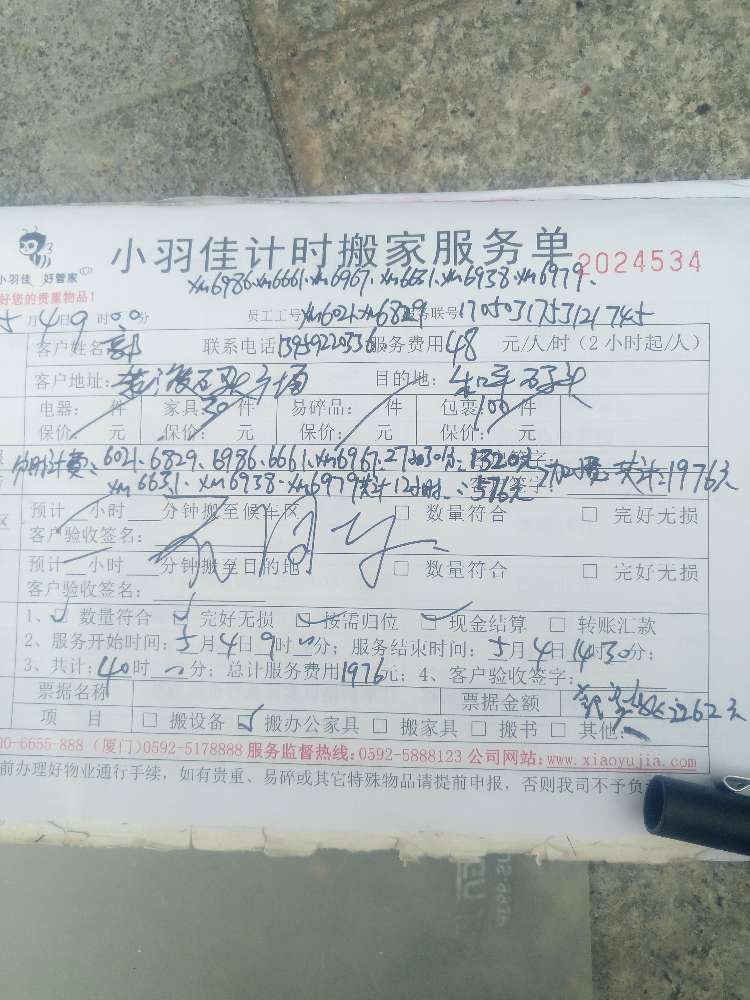 小羽佳计时搬家服务单 2024534
小羽佳 好管家
好您的贵重物品！
xm6986.xm6661.xm6967.xm6631.xm6938.xm6979.
5月4日9时00分 员工工号 xm6021.xm6829 服务联号 1705031753121745
客户姓名 郭 联系电话 服务费用48 元/人/时（2小时起/人）
客户地址: 目的地: 码头
电器: 件 家具:30件 易碎品: 件 包裹:100件
保价: 元 保价: 元 保价: 元 保价: 元
6021.6829.6986.6661.xm6967.27时30分:1320元 共计:1976元
xm6631.xm6938.xm6979共计12小时:576元
预计 小时 分钟搬至候车区 □ 数量符合 □ 完好无损
客户验收签名:
预计 小时 分钟搬至目的地 □ 数量符合 □ 完好无损
客户验收签名:
1、☑ 数量符合 ☑ 完好无损 ☑ 按需归位 ☑ 现金结算 □ 转账汇款
2、服务开始时间:5月4日9时00分; 服务结束时间:5月4日14时30分;
3、共计:40时00分; 总计服务费用1976元; 4、客户验收签字:
票据名称 票据金额 2262元
项 目 □ 搬设备 ☑ 搬办公家具 □ 搬家具 □ 搬书 □ 其他:
00-6655-888 (厦门)0592-5178888 服务监督热线:0592-5888123 公司网站:www.xiaoyujia.com
前办理好物业通行手续，如有贵重、易碎或其它特殊物品请提前申报，否则我司不予负